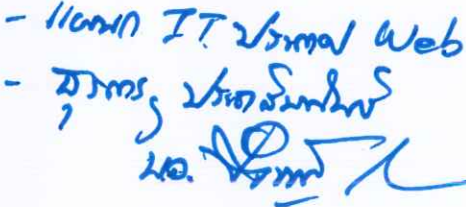 - แผนก IT ประกาศ Web
- ธุรการ ประชาสัมพันธ์